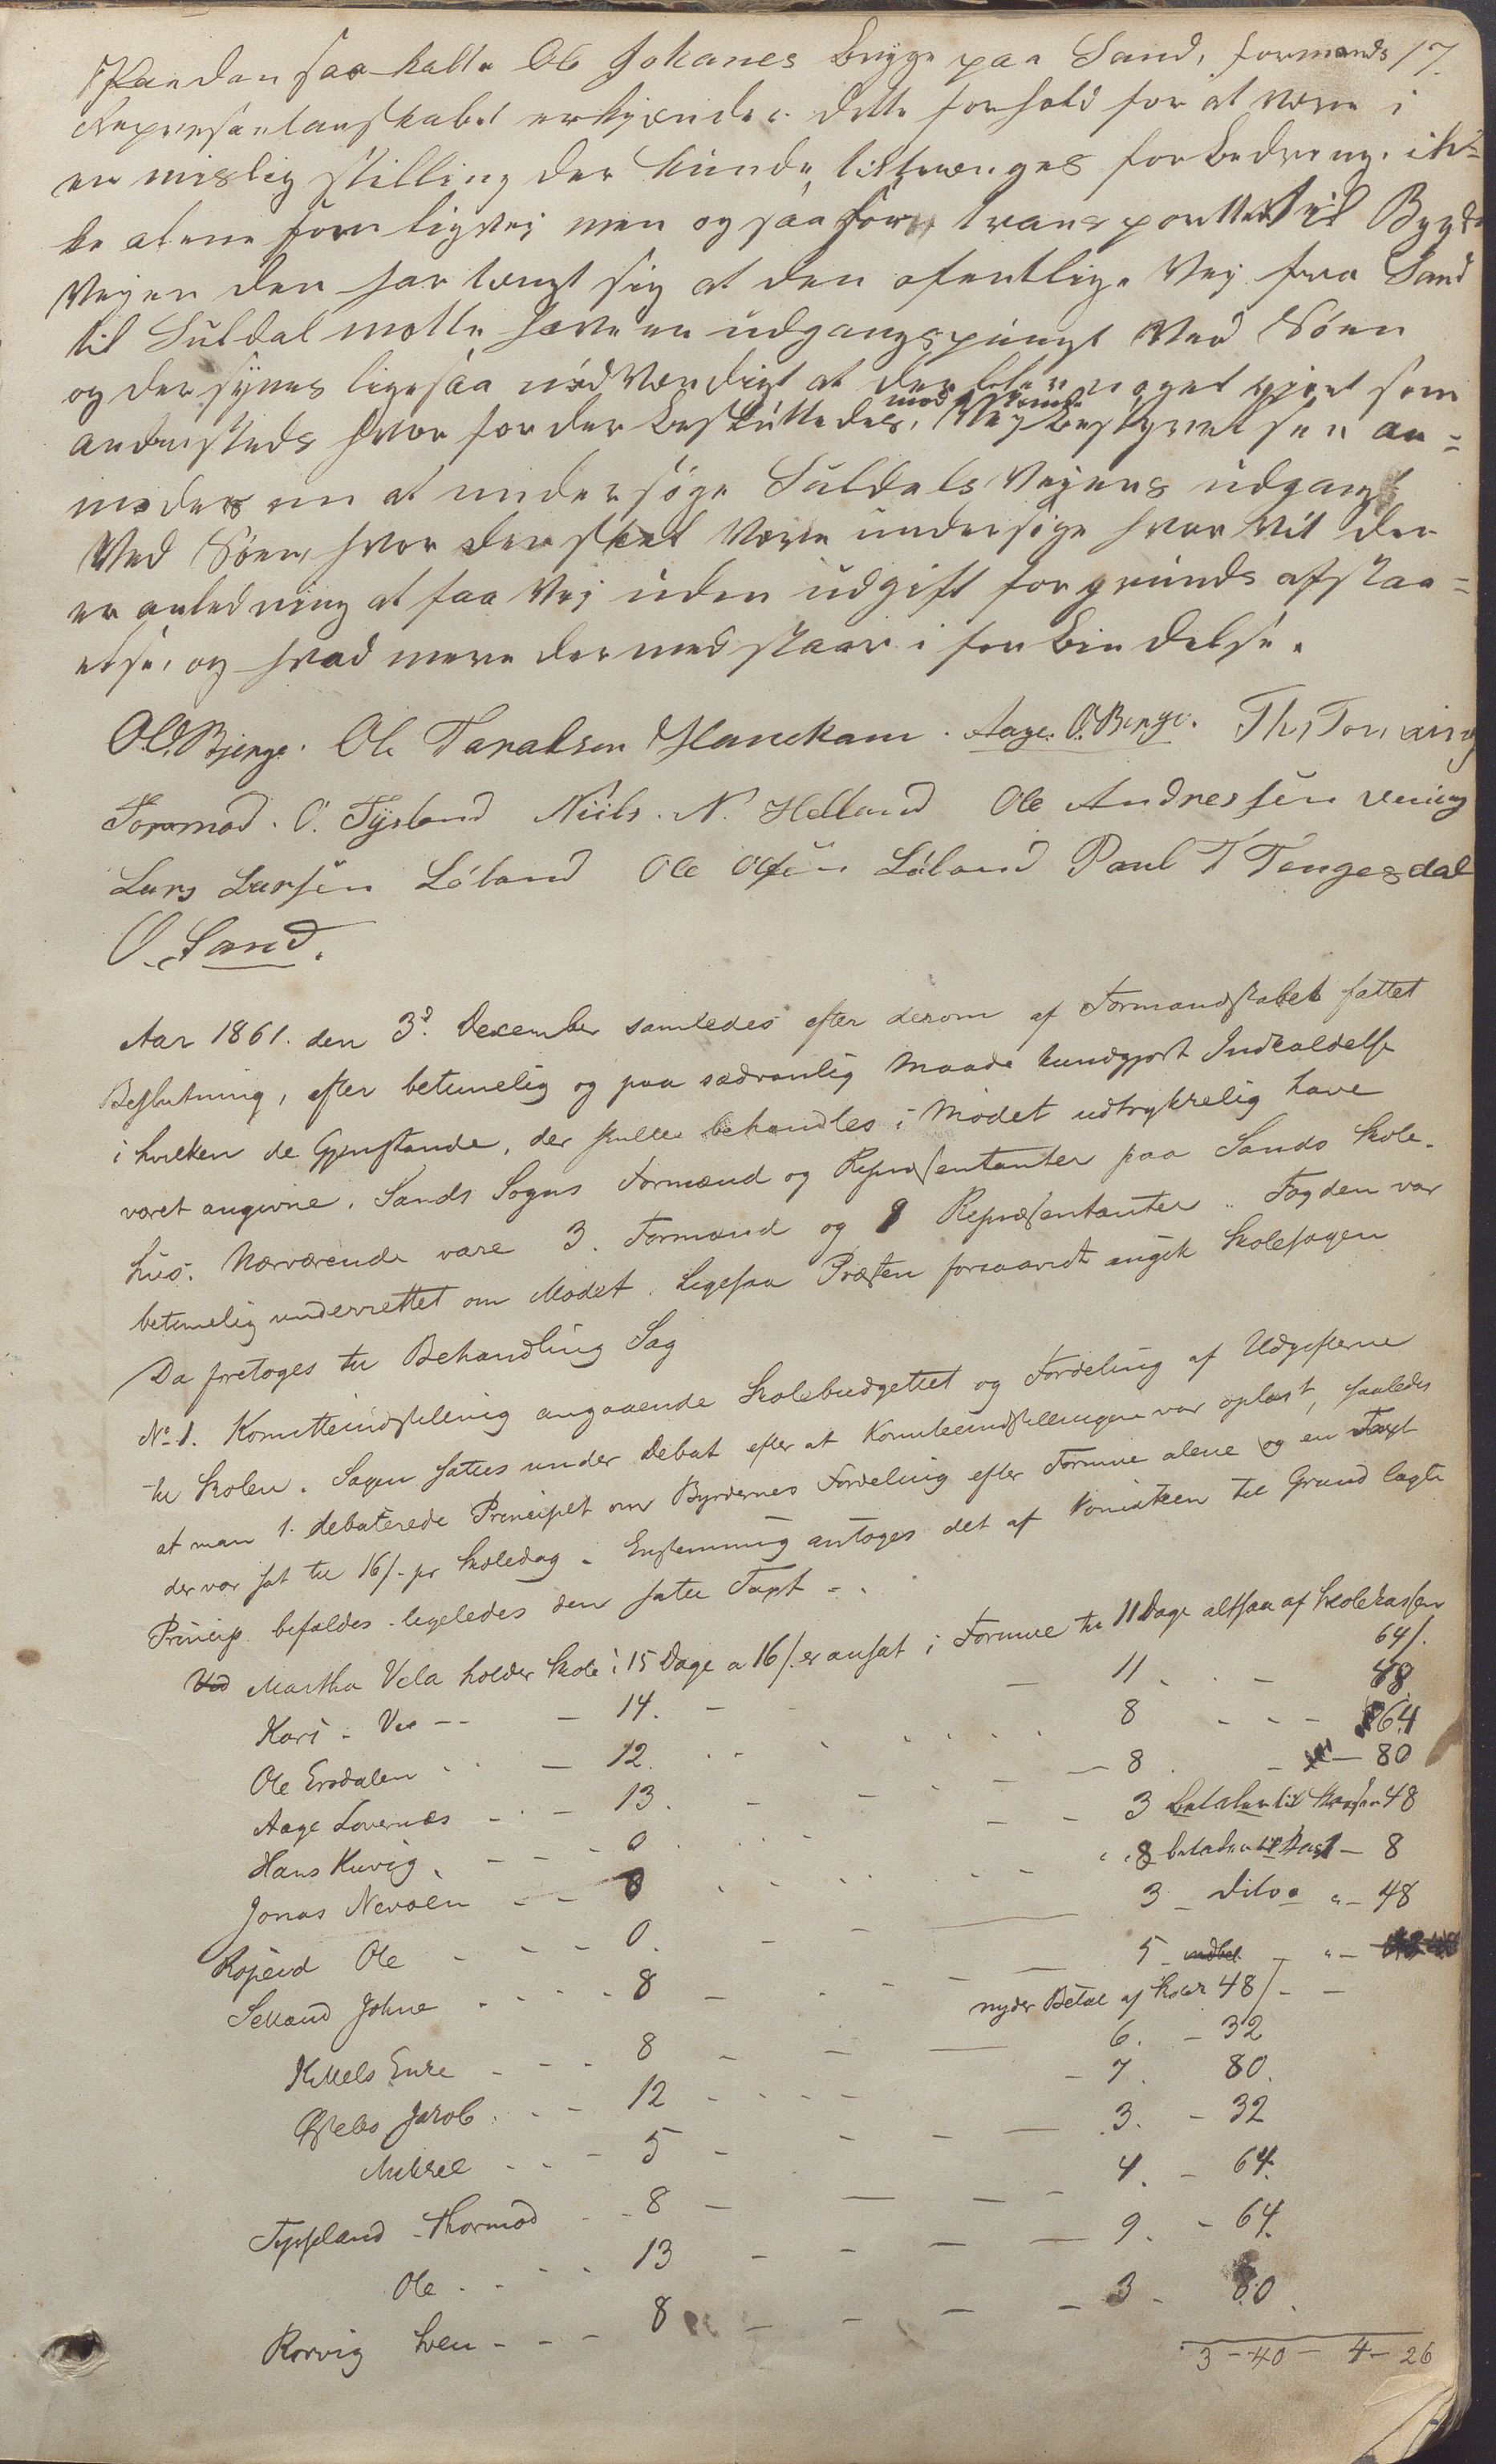 Paa den saakalte Ole Johanes brygge paa Sand, formands 17.
Repræsentanskabet erkjænder dette forhold for at være i
en mislig stilling der kunde tiltrænges forbedring. ik-
ke alene som ligvej men ogsaa for transporten til Bygde
Vejen den har tængt sig at den ofentlige Vej fra Sand
til Suldal motte have en udgangspungt Ved Söen
og der synes ligesaa nødVendigt at der bliver noget gjort som
andensteds hvor for der besluttedes, Vejbestyrelsen an-
modes om at undersöge Suldals Vejens udgangs
Ved Söen, hvor der skal Være undersöge hvor vit der
er anledning at faa Vej uden udgift for grunds afstaa-
else, og hvad mere der med staar i forbindelse.
O. Bjerge. Ole Taralsen Hauekam. Aage O. Berge. Ths Tonning
Tormod. O. Tÿsland Niils. N. Helland Ole Andressen
Lars Larsen Löland Ole Olsen Löland Paul T Tengesdal
O. Sand.
Aar 1861. den 3d. December samledes efter derom af Formandskabet fattet
Beslutning, efter betimelig og paa sædvanlig Maade kundgjort Indkaldelse
i hvilken de Gjenstande, der skulle behandles i Mødet udtrykkelig have
været angivne, Sands Sogns Formænd og Repræsentanter paa Sands Skole-
hus. Nærværende vare 3. Formænd og 9 Repræsentanter. Fogden var
betimelig underrettet om Mødet. Ligesaa Præsten forsaavidt angik Skolesagen
Da foretoges til Behandling Sag
No 1. Komitteindstilling angaaende Skolebudgettet og Fordeling af Udgifterne
til Skolen. Sagen sattes under Debat efter at Komiteeindstillingen var oplæst, saaledes
at man 1. debaterede Principet om Byrdernes Fordeling efter Formue alene og en Taxt
der var sat til 16/- pr Skoledag. Enstemmig antoges det af Komiteen til Grund lagte
Princip. befaldes. ligeledes den satte Taxt -.
Martha Vela holder Skole i 15 Dage a 16/. er ansat i Formue til 11 Dage altsaa af Skolekassen 64/.
Kari - Ve - - - 14. - - - 11 - - 48
Ole Erodalen - - - 12. - - - 8 - - - 64
Aage Lovernes - - - 13. - - - 8 - - 80
Hans Kuvig - - - 0 - - - 3 betaler til Kassen 48
Jonas Nevøen - - 8 - - - 8 betaler til Kas - 8
Røseid Ole - - - 0. - - - 3 - Dito - 48
Selland Johne - - - 8 - - - 5 - -
nyder Betal af Skolek 48/ - -
Kettels Enke - - - 8 - - - 6. - 32
Østebø Jakob - - - 12 - - - 7. 80.
Mikkel - - - 5 - - - 3. - 32
Tyssland - Thormod - - 8 - - - 4. - 64.
Ole - - - 13 - - - 9. - 64.
Rørvig Sven - - - 8 - - - 3 - 80.
3 - 40 - 4 - 26